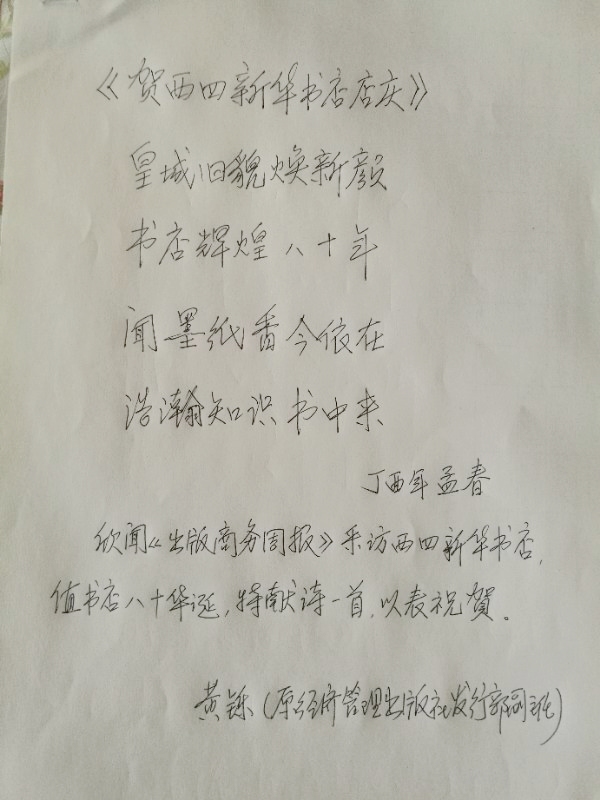 《贺西四新华书店店庆》
皇城旧貌焕新颜
书店辉煌八十年
闻墨纸香今依在
浩瀚知识书中来
丁酉年孟春
欣闻《出版商务周报》采访西四新华书店,
值书店八十华诞,特献诗一首,以表祝賀。
黄铄(原经济管理出版社发行部